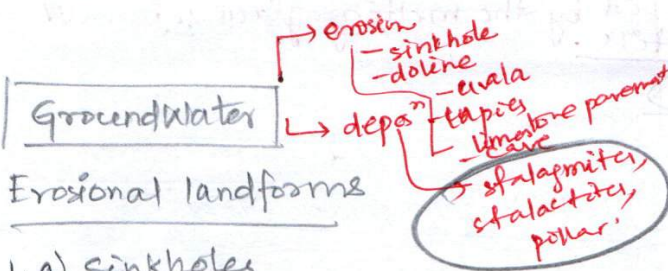 → erosion
- sinkhole
- doline
- uvala
- lapies
- limestone pavement
- cave
Groundwater
→ deposⁿ
- stalagmites,
stalactites,
pillar.
Erosional landforms
1. a) Sinkholes